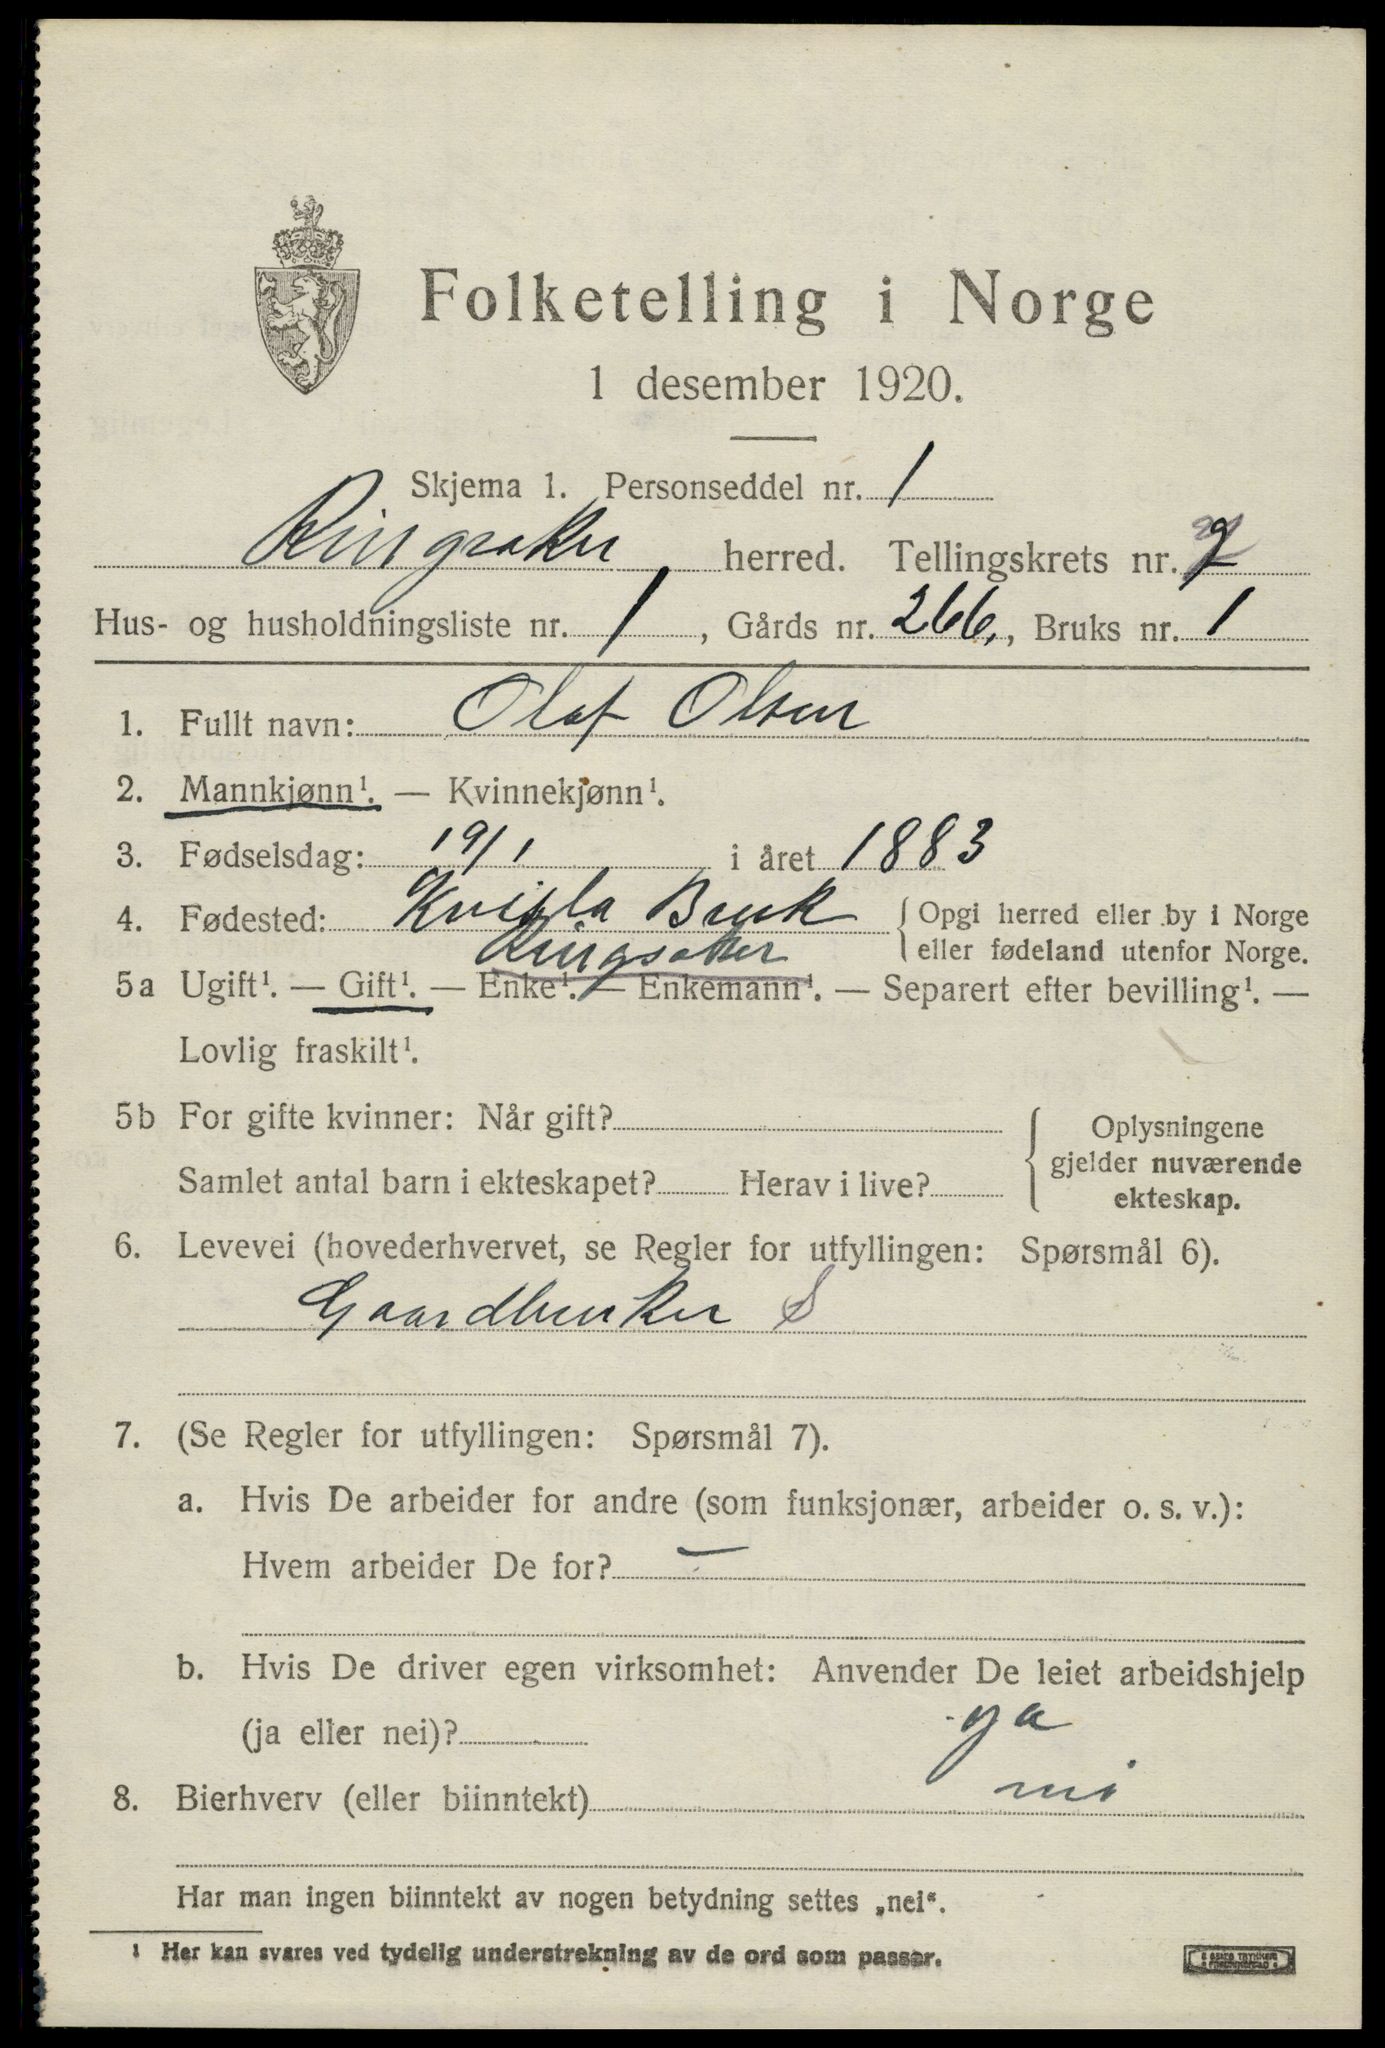 Folketelling i Norge
1 desember 1920.
Skjema 1. Personseddel nr. 1
Ringsaker herred. Tellingskrets nr.
Hus- og husholdningsliste nr. 1, Gårds nr. 266,, Bruks nr. 1
1. Fullt navn: Olaf Olsen
2. Mannkjønn¹. — Kvinnekjønn¹.
3. Fødselsdag: 19/1 i året 1883
4. Fødested: Kvisla Bruk { Opgi herred eller by i Norge
Ringsaker eller fødeland utenfor Norge.
5a Ugift¹. — Gift¹. — Enke¹. — Enkemann¹. — Separert efter bevilling¹. —
Lovlig fraskilt¹.
5b For gifte kvinner: Når gift? { Oplysningene
gjelder nuværende
Samlet antal barn i ekteskapet? Herav i live? ekteskap.
6. Levevei (hovederhvervet, se Regler for utfyllingen: Spørsmål 6).
Gaardbruker S
7. (Se Regler for utfyllingen: Spørsmål 7).
a. Hvis De arbeider for andre (som funksjonær, arbeider o. s. v.):
Hvem arbeider De for? —
b. Hvis De driver egen virksomhet: Anvender De leiet arbeidshjelp
(ja eller nei)? ja
8. Bierhverv (eller biinntekt) nei
Har man ingen biinntekt av nogen betydning settes „nei“.
¹ Her kan svares ved tydelig understrekning av de ord som passer.